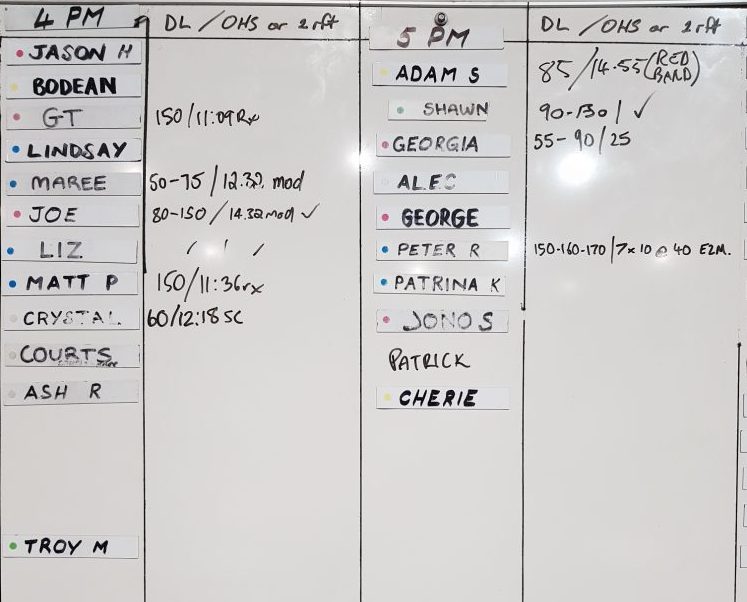 4 PM DL / OHS or 2 rft
JASON H
BODEAN
GT 150/11:09 Rx
LINDSAY
MAREE 50-75 / 12.32 mod
JOE 80-150 / 14.32 mod ✓
LIZ / ' /
MATT P 150/11:36rx
CRYSTAL 60/12:18 SC
COURTS
ASH R
TROY M
5 PM DL / OHS or 2 rft
ADAM S 85/14.55 (RED BAND)
SHAWN 90-130/ ✓
GEORGIA 55-90/25
ALEC
GEORGE
PETER R 150-160-170 | 7x10 @ 40 E2M.
PATRINA K
JONO S
PATRICK
CHERIE